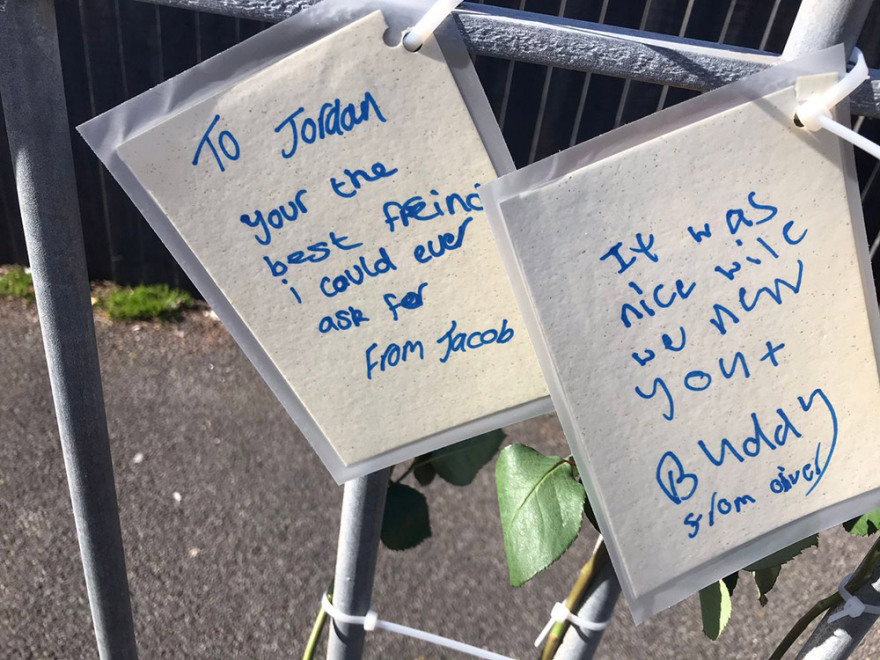 To Jordan
your the
best freind
i could ever
ask for
from Jacob
It was
nice wile
we new
you +
Buddy
from oliver